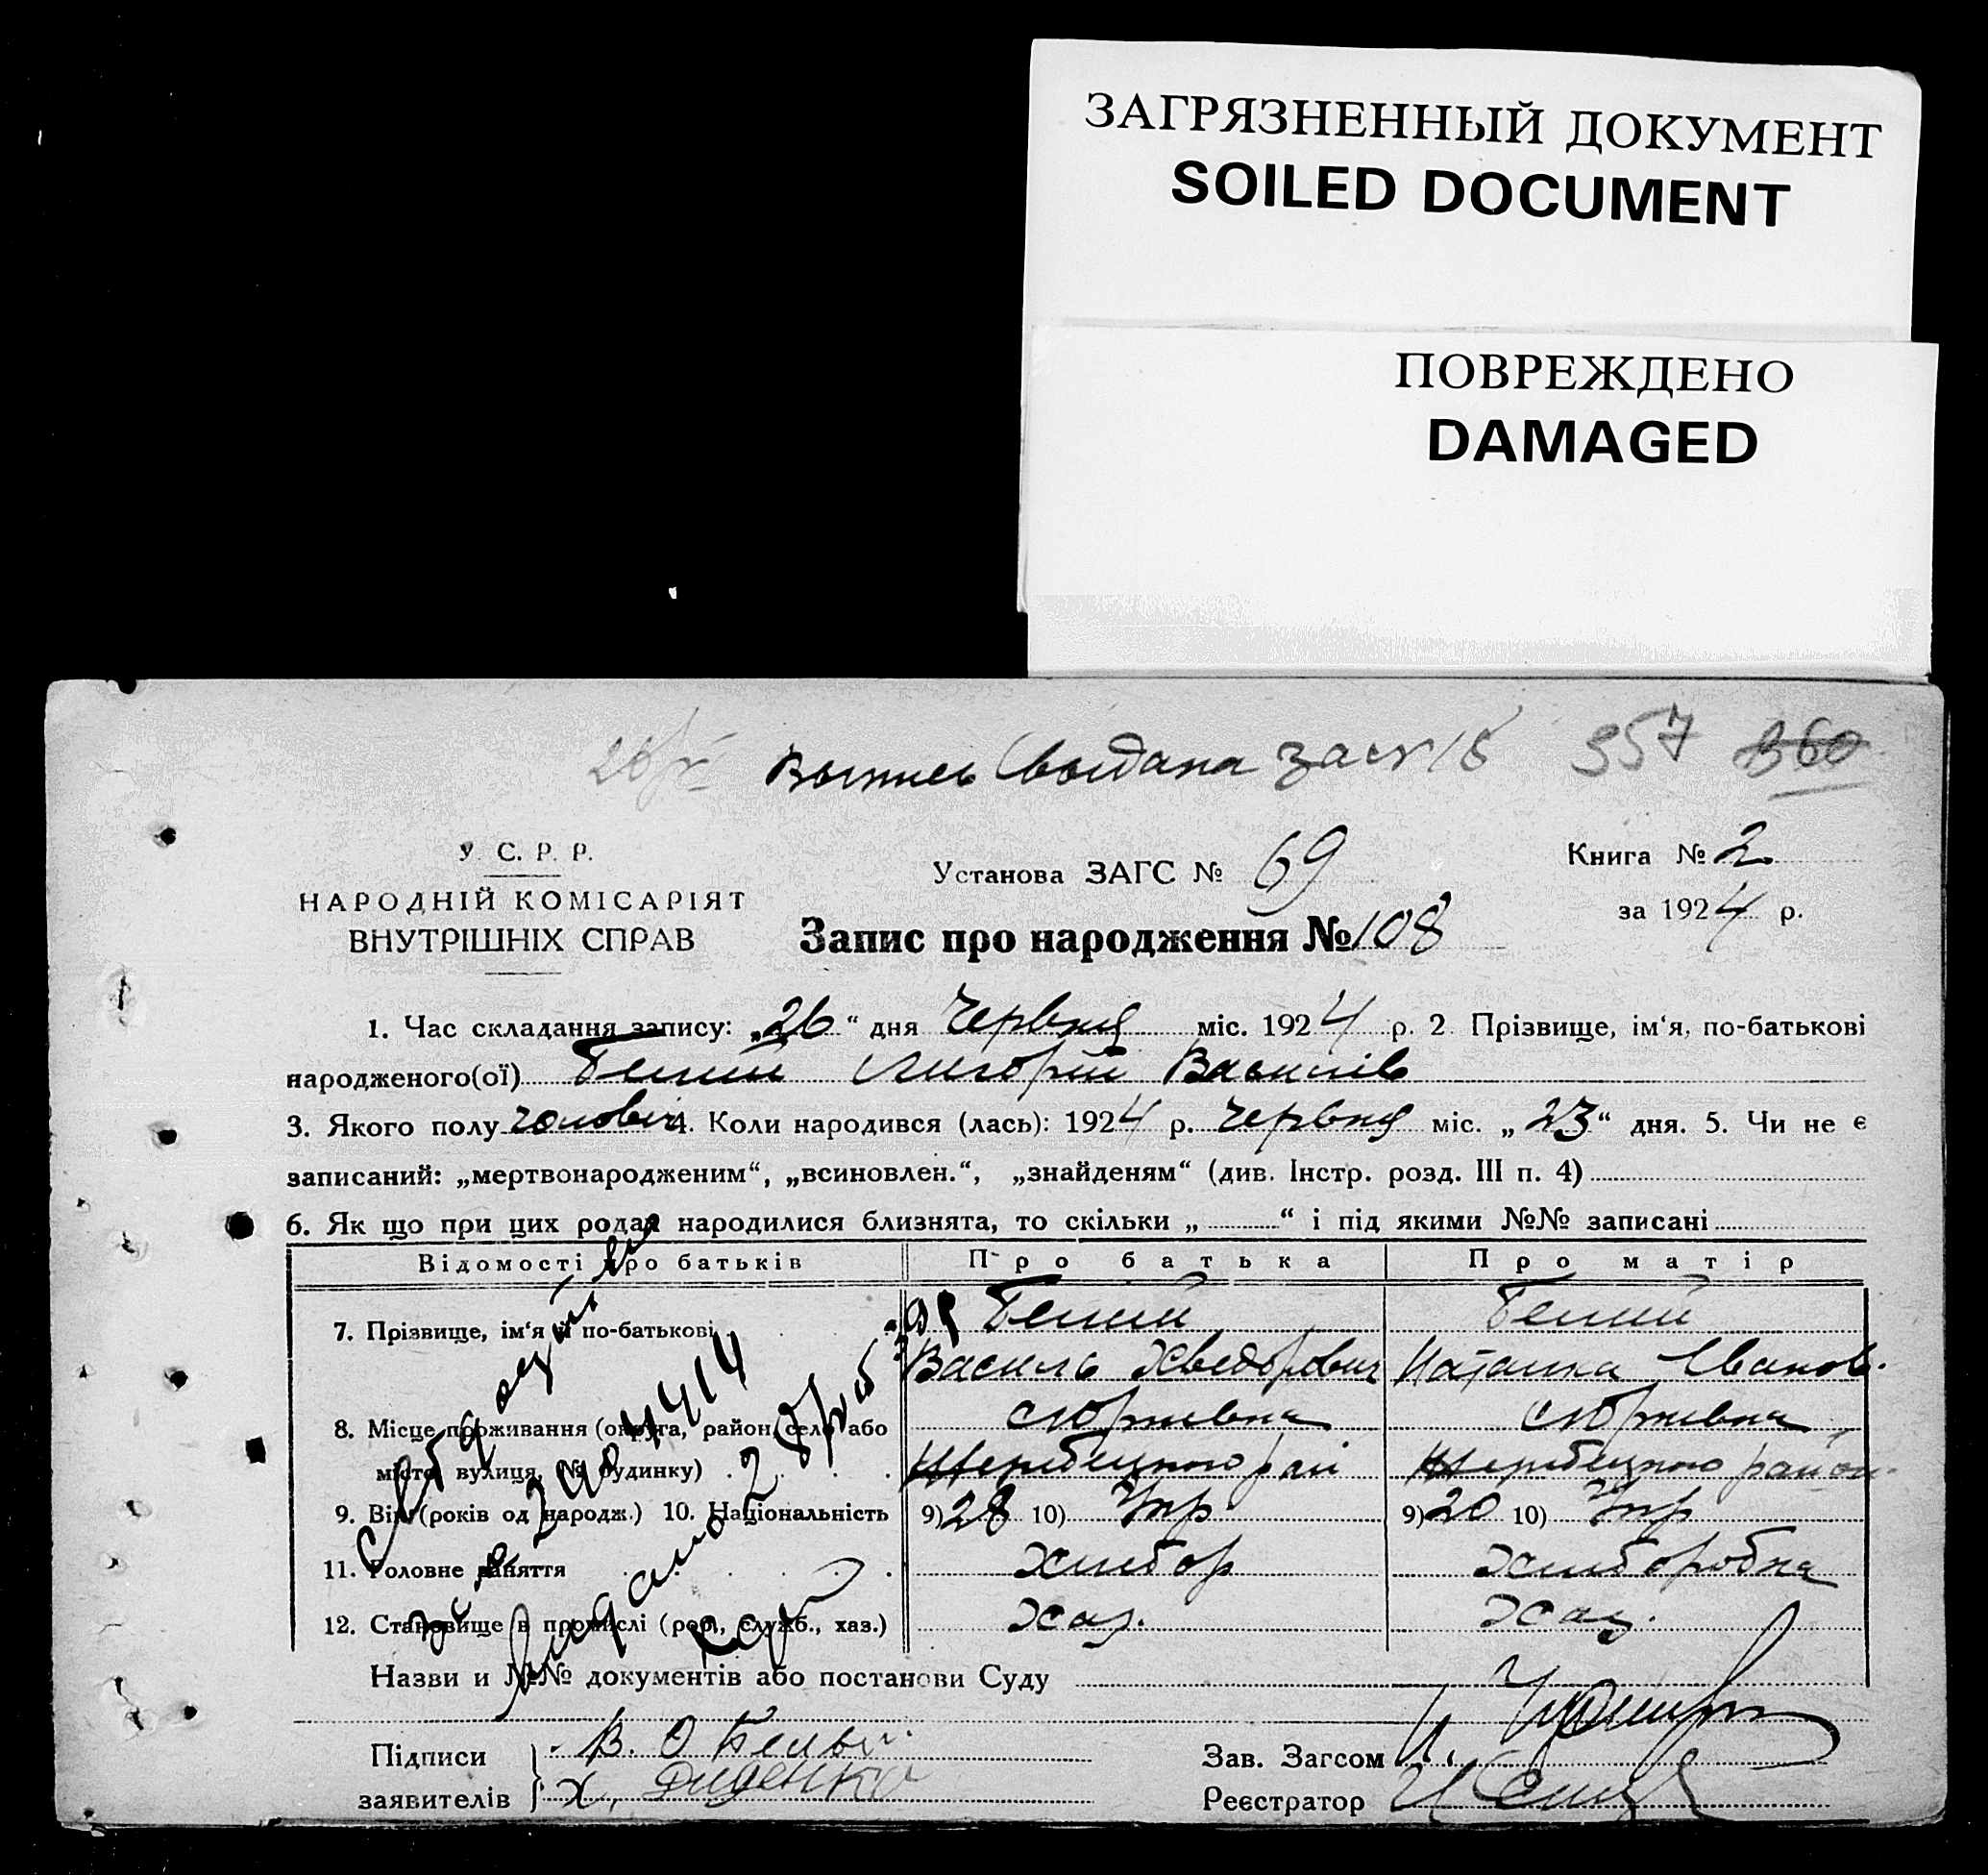 ЗАГРЯЗНЕННЫЙ ДОКУМЕНТ
SOILED DOCUMENT
ПОВРЕЖДЕНО
DAMAGED
выдана 357 360
У. С. Р. Р.
НАРОДНІЙ КОМІСАРІЯТ
ВНУТРІШНІХ СПРАВ
Установа ЗАГС № 69
Книга № 2
за 1924 р.
Запис про народження № 108
1. Час складання запису: „26“ дня Червня міс. 1924 р. 2 Прізвище, ім‘я, по-батькові
народженого(ої) Белий Лигорій Василів
3. Якого полу чоловіч 4. Коли народився (лась): 1924 р. Червня міс. „23“ дня. 5. Чи не є
записаний: „мертвонародженим“, „всиновлен.“, „знайденям“ (див. Інстр. розд. III п. 4)
6. Як що при цих родах народилися близнята, то скільки „ “ і під якими №№ записані
Відомості про батьків Про батька Про матір
7. Прізвище, ім‘я й по-батькові Белий Белий
Василь Хведорович Наталка Іванов.
8. Місце проживання (округа, район, село або
місто, вулиця, № будинку)
9. Вік (років од народж.) 10. Національність 9) 28 10) Укр 9) 20 10) Укр
11. Головне заняття хлібор хлиборобка
12. Становище в промислі (роб., служб., хаз.) хаз. хаз.
Назви и №№ документів або постанови Суду
Підписи В. О Белый
заявителів Х. Диденко
Зав. Загсом
Реєстратор